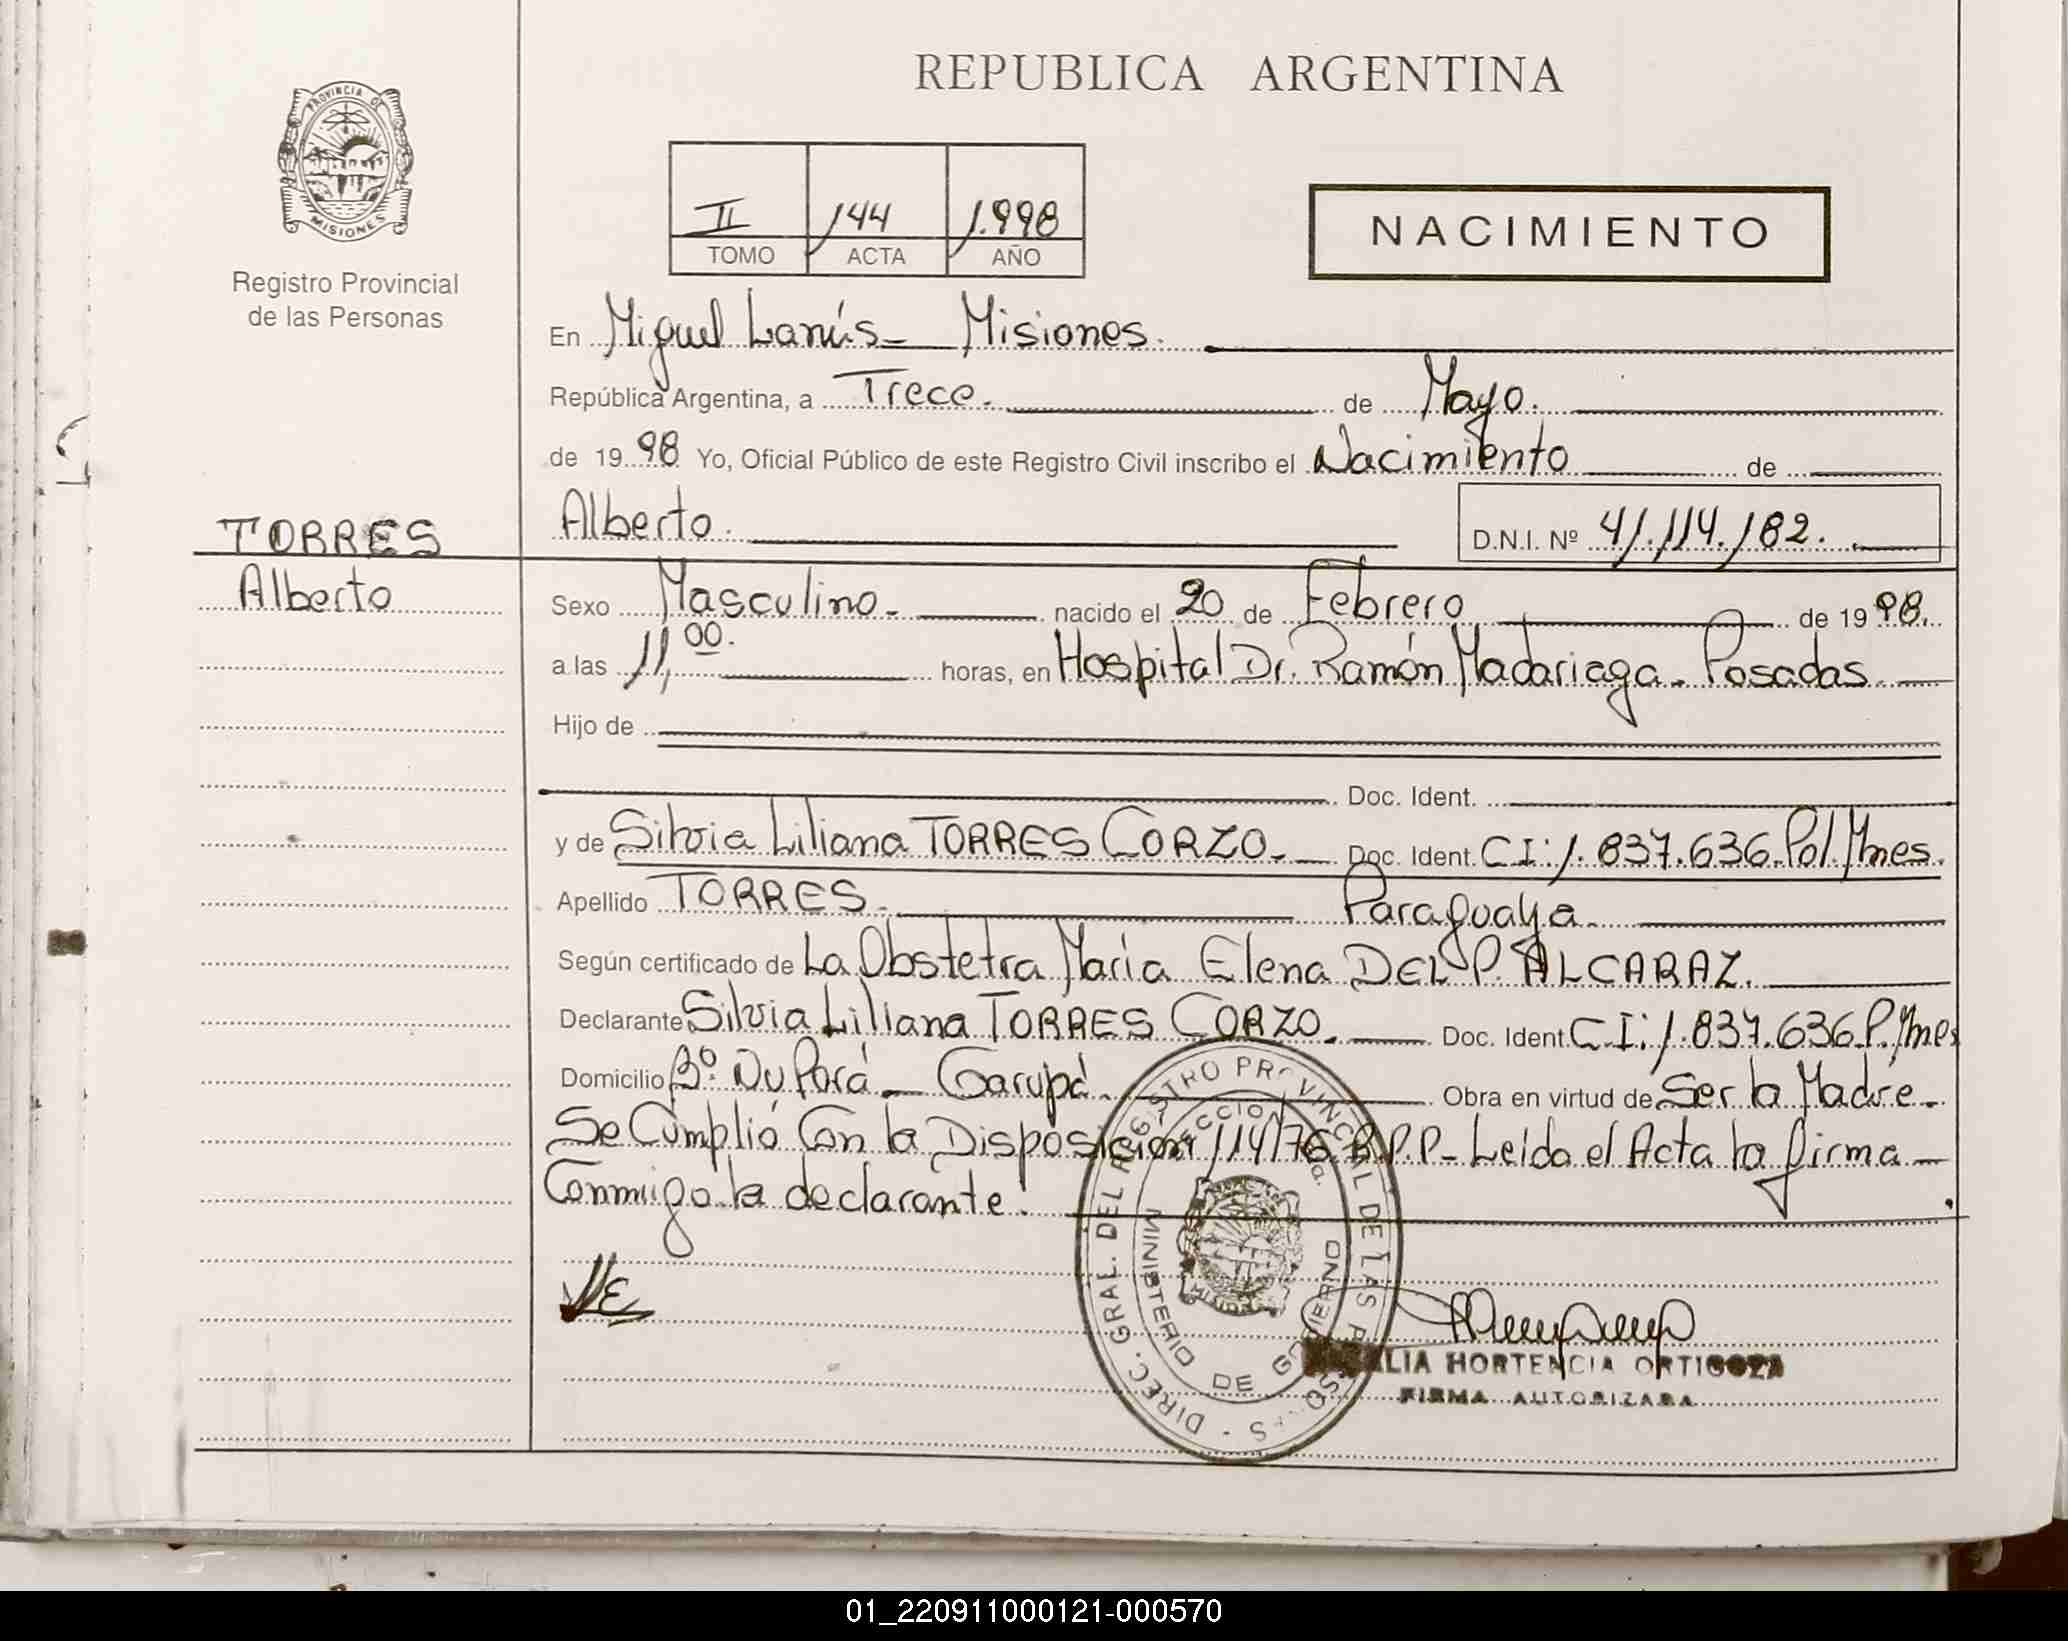 REPUBLICA ARGENTINA
PROVINCIA DE
MISIONES
Registro Provincial
de las Personas
II 144 1.998
TOMO ACTA AÑO
NACIMIENTO
En Miguel Lanús - Misiones.
República Argentina, a Trece. de Mayo.
de 19 98 Yo, Oficial Público de este Registro Civil inscribo el Nacimiento de
Alberto. D.N.I. Nº 41.114.182.
TORRES
Alberto
Sexo Masculino. nacido el 20 de Febrero de 19 98.
a las 11,00. horas, en Hospital Dr. Ramón Madariaga. Posadas
Hijo de
Doc. Ident.
y de Silvia Liliana TORRES CORZO. Doc. Ident. CI: 1.837.636 Pol. Mnes.
Apellido TORRES. Paraguaya.
Según certificado de La Obstetra María Elena DEL P. ALCARAZ.
Declarante Silvia Liliana TORRES CORZO. Doc. Ident. C.I: 1.837.636 P. Mnes
Domicilio Bº. Ñu Porá - Garupá. Obra en virtud de Ser la Madre.
Se Cumplió Con la Disposición 114/76 R.P.P - Leída el Acta la firma
Conmigo la declarante.
DIREC. GRAL. DEL REGISTRO PROVINCIAL DE LAS PERSONAS
MINISTERIO DE GOBIERNO
HORTENCIA ORTIGOZA
FIRMA AUTORIZADA
01_220911000121-000570